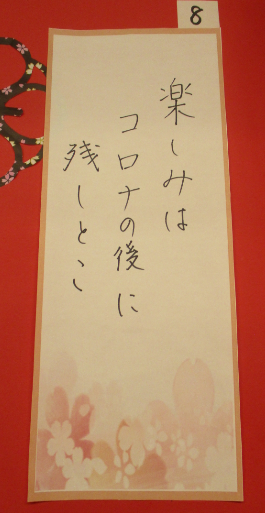 8
楽しみは
コロナの後に
残しとこ